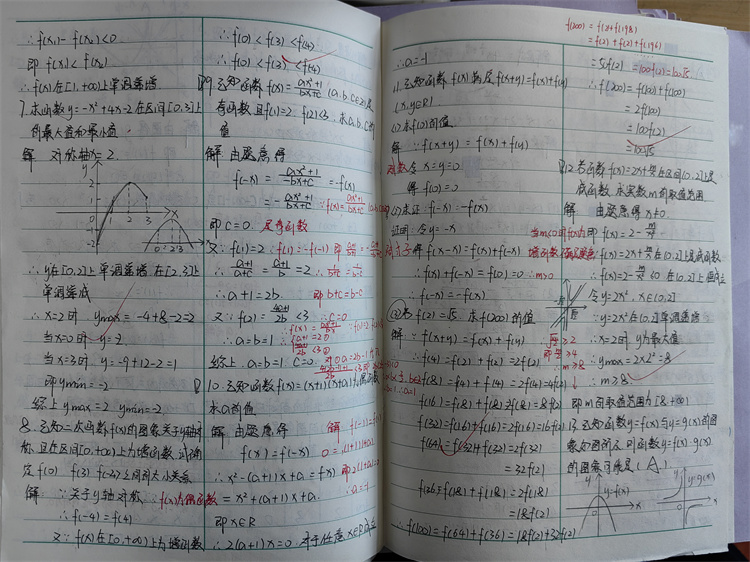 ∴f(x₁)-f(x₂)<0
即 f(x₁)<f(x₂)
∴f(x)在[1,+∞)上单调递增
7.求函数y=-x²+4x-2在区间[0,3]上
的最大值和最小值
解 对称轴x=2
y
2
1
1 2 3
-1
-2
x
0 1 2 3
∴y在[0,2]上单调递增 在[2,3]上
单调递减
∴x=2时 ymax=-4+8-2=2
当x=0时 y=-2
当x=3时 y=-9+12-2=1
即ymin=-2
综上ymax=2 ymin=-2
8.已知二次函数f(x)的图象关于y轴对
称 且在区间[0,+∞)上为增函数 试确
定f(0) f(3) f(-4)之间的大小关系
解:∵关于y轴对称 ∴f(x)为偶函数
∴f(-4)=f(4)
又∵f(x)在[0,+∞)上为增函数
∴f(0)<f(3)<f(4)
∴f(0)<f(3)<f(-4)
9.已知函数f(x)=(ax²+1)/(bx+c) (a,b,c∈Z)是
奇函数 且f(1)=2 f(2)<3 求a,b,c的
值
解 由题意得
f(-x)=(ax²+1)/(-bx+c)=-f(x)
即 c=0 是奇函数
又∵f(1)=2 ∴f(1)=-f(-1)
∴(a+1)/(b+c)=(a+1)/b=2
∴a+1=2b 即b+c=b-c
又∵f(2)=(4a+1)/2b<3 ∴c=0
∴a=b=1
综上 a=b=1 c=0
10.已知函数f(x)=(x+1)(x+a)为偶函数
求a的值
解 由题意得 解 f(-1)=f(1)
f(x)=f(-x) 0=(1+1)(1+a)
∴x²-(a+1)x+a=f(x) 即2(1+a)=0
=x²+(a+1)x+a ∴a=-1
即x∈R
∴2(a+1)x=0 对于任意x∈R成立
f(200)=f(2)+f(198)
=f(2)+f(2)+f(196)
∴a=-1
11.已知函数f(x)满足f(x+y)=f(x)+f(y)
(x,y∈R)
(1)求f(0)的值
解 ∵f(x+y)=f(x)+f(y)
令x=y=0
得f(0)=0
(2)求证:f(-x)=-f(x)
证明 令y=-x
f(x-x)=f(x)+f(-x)
∴f(x)+f(-x)=f(0)=0
∴f(-x)=-f(x)
(3)若f(2)=√5 求f(200)的值
解 ∵f(x+y)=f(x)+f(y)
∴f(4)=f(2)+f(2)=2f(2)
f(8)=f(4)+f(4)=2f(4)=4f(2)
f(16)=f(8)+f(8)=2f(8)=8f(2)
f(32)=f(16)+f(16)=2f(16)=16f(2)
f(64)=f(32)+f(32)=2f(32)
=32f(2)
f(36)=f(18)+f(18)=2f(18)
=18f(2)
∴f(100)=f(64)+f(36)=18f(2)+32f(2)
=50f(2)=100f(2)=100√5
∴f(200)=f(100)+f(100)
=2f(100)
=100f(2)
=100√5
12.若函数f(x)=2x+m/x在区间(0,2]上是
减函数 求实数m的取值范围
解 由题意得x≠0
当m<0时f(x)为 即f(x)=2-m/x²
增函数 不满足题意 ∵f(x)=2x+m/x在(0,2]上是减函数
∴m>0 ∴f(x)=2-m/x²≤0在(0,2]上恒成立
令y=2x² x∈(0,2]
∵y=2x²在(0,2]单调递增
∴x=2时 y为最大值
∴ymax=2×2²=8
∴m≥8
即m的取值范围为[8,+∞)
13.已知函数y=f(x)与y=g(x)的图
象如图所示 则函数y=f(x)·g(x)
的图象可能是(A)
y
y=f(x)
x
y
y=g(x)
x